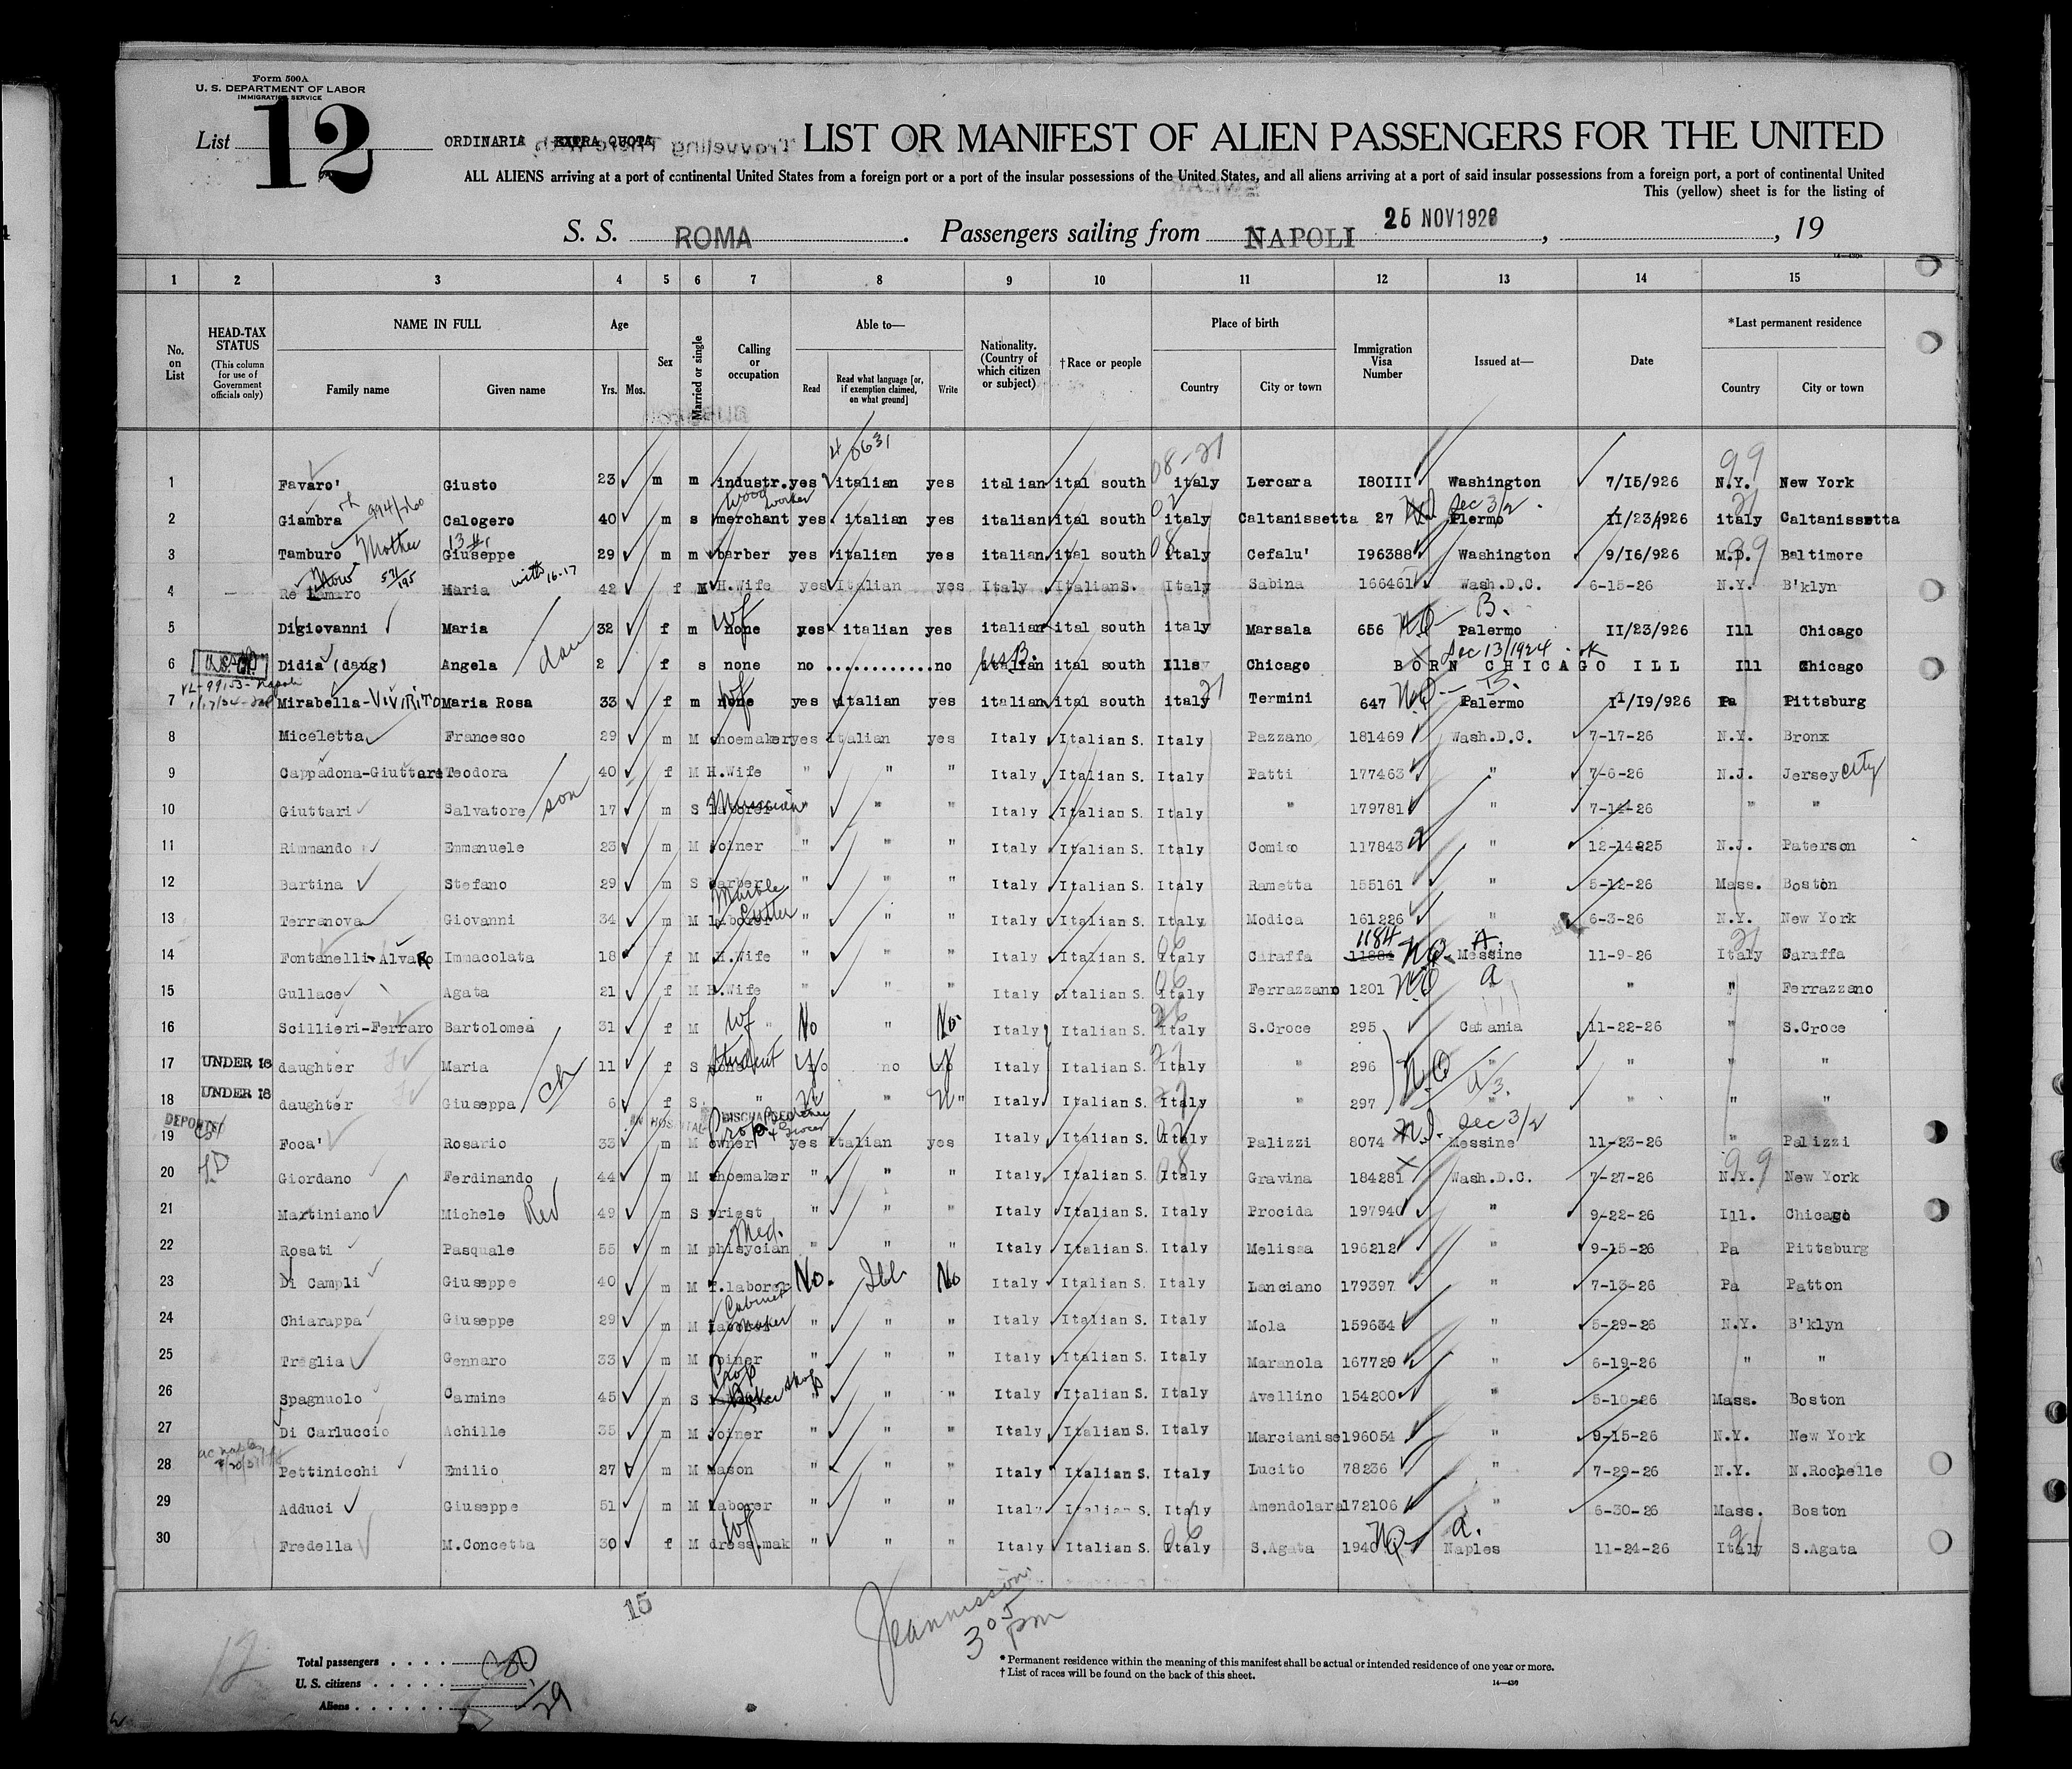 Form 500A
U. S. DEPARTMENT OF LABOR
IMMIGRATION SERVICE
List 12
ORDINARIA EXTRA QUOTA
LIST OR MANIFEST OF ALIEN PASSENGERS FOR THE UNITED
ALL ALIENS arriving at a port of continental United States from a foreign port or a port of the insular possessions of the United States, and all aliens arriving at a port of said insular possessions from a foreign port, a port of continental United
This (yellow) sheet is for the listing of
S. S. ROMA. Passengers sailing from NAPOLI 25 NOV 1926, , 19
1 2 3 4 5 6 7 8 9 10 11 12 13 14 15
No. on List
HEAD-TAX STATUS (This column for use of Government officials only)
NAME IN FULL Family name Given name
Age Yrs. Mos.
Sex
Married or single
Calling or occupation
Able to— Read Read what language [or, if exemption claimed, on what ground] Write
Nationality. (Country of which citizen or subject)
†Race or people
Place of birth Country City or town
Immigration Visa Number
Issued at—
Date
*Last permanent residence Country City or town
4 0631 08-21 99
1 Favaro' Giusto 23 m m industr. yes italian yes italian ital south italy Lercara I80III Washington 7/I5/926 N.Y. New York
wood worker Sec 3/2
2 Giambra 994/260 Calogero 40 m s merchant yes italian yes italian ital south italy Caltanissetta 27 Plermo II/23/926 italy Caltanissetta
3 Tamburo Mother Giuseppe 29 m m barber yes italian yes italian ital south italy Cefalu' I96388 Washington 9/I6/926 M.D. Baltimore
4 Re Maria with 16-17 42 f M H.Wife yes Italian yes Italy Italian S. Italy Sabina 166461 Wash.D.C. 6-15-26 N.Y. B'klyn
5 Digiovanni Maria 32 f m none wf yes italian yes italian ital south italy Marsala 656 NQ B. Palermo II/23/926 Ill Chicago
6 Didia (daug) Angela dau 2 f s none no ............ no italian ital south Ills Chicago BORN CHICAGO ILL Dec 13/1924 ok Ill Chicago
7 Mirabella-VIVIRITO Maria Rosa 33 f m none wf yes italian yes italian ital south italy Termini 647 NQ B. Palermo II/19/926 Pa Pittsburg
8 Miceletta Francesco 29 m M shoemaker yes Italian yes Italy Italian S. Italy Pazzano 181469 Wash.D.C. 7-17-26 N.Y. Bronx
9 Cappadona-Giuttari Teodora 40 f M H.Wife " " " Italy Italian S. Italy Patti 177463 " 7-6-26 N.J. Jersey City
10 Giuttari Salvatore son 17 m S laborer Musician " " " Italy Italian S. Italy " 179781 " 7-14-26 " "
11 Rimmando Emmanuele 23 m M joiner " " " Italy Italian S. Italy Comiso 117843 " 12-14-25 N.J. Paterson
12 Bartina Stefano 29 m S barber " " " Italy Italian S. Italy Rametta 155161 " 5-12-26 Mass. Boston
Marble Cutter
13 Terranova Giovanni 34 m M laborer " " " Italy Italian S. Italy Modica 161226 " 6-3-26 N.Y. New York
14 Fontanelli-Alvaro Immacolata 18 f M H.Wife " " " Italy Italian S. Italy Caraffa 1184 11884 NQ A. Messine 11-9-26 Italy Caraffa
15 Gullace Agata 21 f M H.Wife " " " Italy Italian S. Italy Ferrazzano 1201 NQ a " " " Ferrazzano
16 Scillieri-Ferraro Bartolomea 31 f M wf " No " No. Italy Italian S. Italy S.Croce 295 Catania 11-22-26 " S.Croce
17 UNDER 16 daughter Maria 11 f S student no Italy Italian S. Italy " 296 NQ " " " "
18 UNDER 16 daughter Giuseppa ch 6 f S. " " Italy Italian S. Italy " 297 " " " "
DEPORTED IN HOSPITAL DISCHARGED Sec 3/2
19 Foca' Rosario 33 m M owner yes Italian yes Italy Italian S. Italy Palizzi 8074 Messine 11-23-26 " Palizzi
20 Giordano Ferdinando 44 m M shoemaker " " " Italy Italian S. Italy Gravina 184281 Wash.D.C. 7-27-26 N.Y. New York
21 Martiniano Michele Rev 49 m S priest " " " Italy Italian S. Italy Procida 197940 " 9-22-26 Ill. Chicago
22 Rosati Pasquale 55 m M phisycian Med. " " " Italy Italian S. Italy Melissa 196212 " 9-15-26 Pa Pittsburg
23 Di Campli Giuseppe 40 m M F.laborer No. Ill. No Italy Italian S. Italy Lanciano 179397 " 7-13-26 Pa Patton
24 Chiarappa Giuseppe 29 m M laborer Cabinet maker " " " Italy Italian S. Italy Mola 159634 " 5-29-26 N.Y. B'klyn
25 Treglia Gennaro 33 m M joiner " " " Italy Italian S. Italy Maranola 167729 " 6-19-26 " "
26 Spagnuolo Carmine 45 m S Prop shop " " " Italy Italian S. Italy Avellino 154200 " 5-10-26 Mass. Boston
27 Di Carluccio Achille 35 m M joiner " " " Italy Italian S. Italy Marcianise 196054 " 9-15-26 N.Y. New York
28 Pettinicchi Emilio 27 m M mason " " " Italy Italian S. Italy Lucito 78236 " 7-29-26 N.Y. N.Rochelle
29 Adduci Giuseppe 51 m M laborer " " " Italy Italian S. Italy Amendolara 172106 " 6-30-26 Mass. Boston
30 Fredella M.Concetta 30 f M dress.mak wf " " " Italy Italian S. Italy S.Agata 1940 NQ a. Naples 11-24-26 Italy S.Agata
15
Jeannisson
3 05 pm
12
Total passengers . . . . 30
U. S. citizens . . . . . 1
Aliens . . . . . . 29
* Permanent residence within the meaning of this manifest shall be actual or intended residence of one year or more.
† List of races will be found on the back of this sheet.
14—430